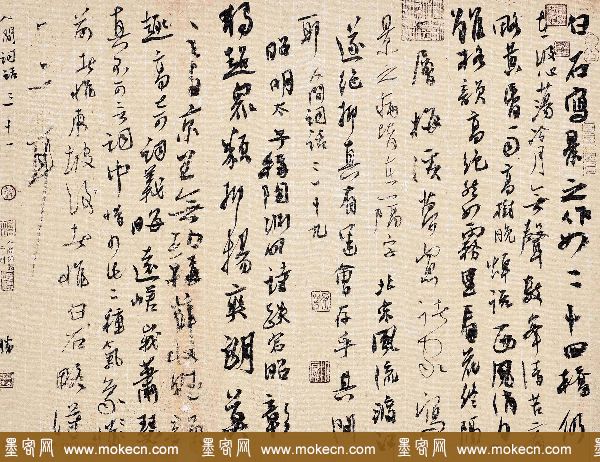 白石寫景之作如二十四橋仍
在波心蕩冷月無聲數峰清苦商
略黃昏雨高樹晚蟬說西風消息
雖格韻高絕然如霧里看花終隔
一層梅溪夢窗諸家寫
景之病皆在一隔字北宋風流渡江
遂絕抑真有運會存乎其間
耶 人間詞話三十九
昭明太子稱陶淵明詩跌宕昭彰
獨超衆類抑揚爽朗莫
之與京王無功稱薛收賦韻
趣高奇詞義晦遠嵯峨蕭瑟
真不可言詞中惜少此二種氣象
前者惟東坡後者惟白石略得
一二耳
人間詞話三十一
墨客网 www.mokecn.com 墨客网 www.mokecn.com 墨客网 www.mokecn.com